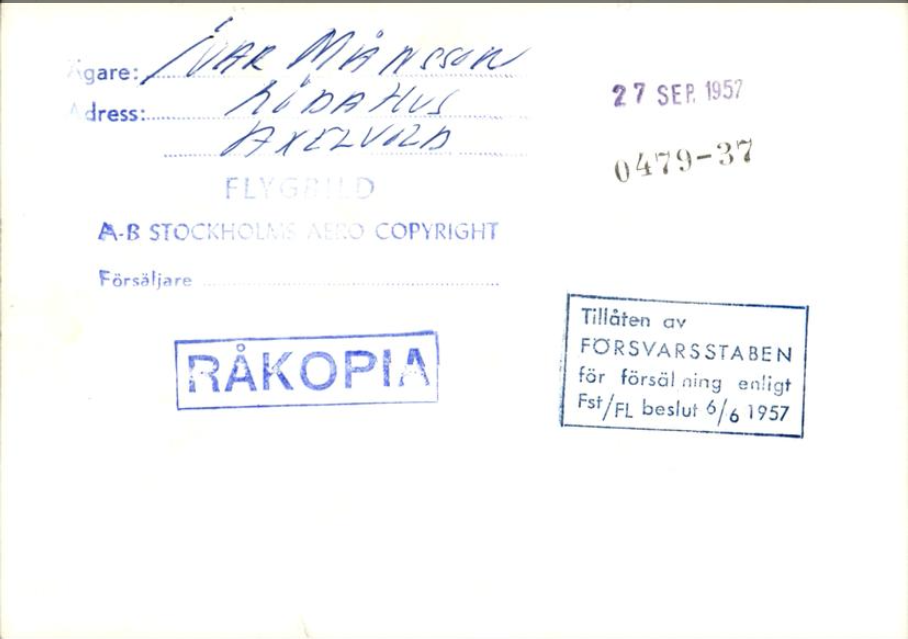 Ägare: IVAR MÅNSSON
Adress: RÖDAHUS
AXELVOLD
27 SEP. 1957
0479-37
FLYGBILD
A-B STOCKHOLMS AERO COPYRIGHT
Försäljare
RÅKOPIA
Tillåten av
FÖRSVARSSTABEN
för försäl ning enligt
Fst/FL beslut 6/6 1957